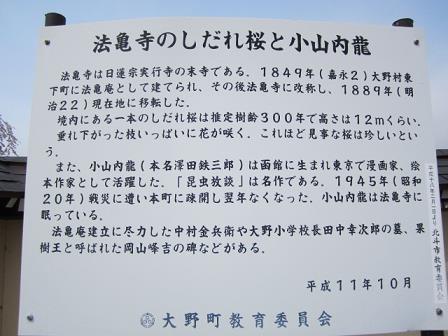 法亀寺のしだれ桜と小山内龍
法亀寺は日蓮宗実行寺の末寺である．1849年（嘉永2）大野村東
下町に法亀庵として建てられ，その後法亀寺に改称し，1889年（明
治22）現在地に移転した．
境内にある一本のしだれ桜は推定樹齢300年で高さは12mくらい．
垂れ下がった枝いっぱいに花が咲く．これほど見事な桜は珍しいとい
う．
また，小山内龍（本名澤田鉄三郎）は函館に生まれ東京で漫画家，絵
本作家として活躍した．「昆虫放談」は名作である．1945年（昭和
20年）戦災に遭い本町に疎開し翌年なくなった．小山内龍は法亀寺に
眠っている．
法亀庵建立に尽力した中村金兵衛や大野小学校長田中幸次郎の墓，果
樹王と呼ばれた岡山峰吉の碑などがある．
平成11年10月
大野町教育委員会
北斗市教育委員会